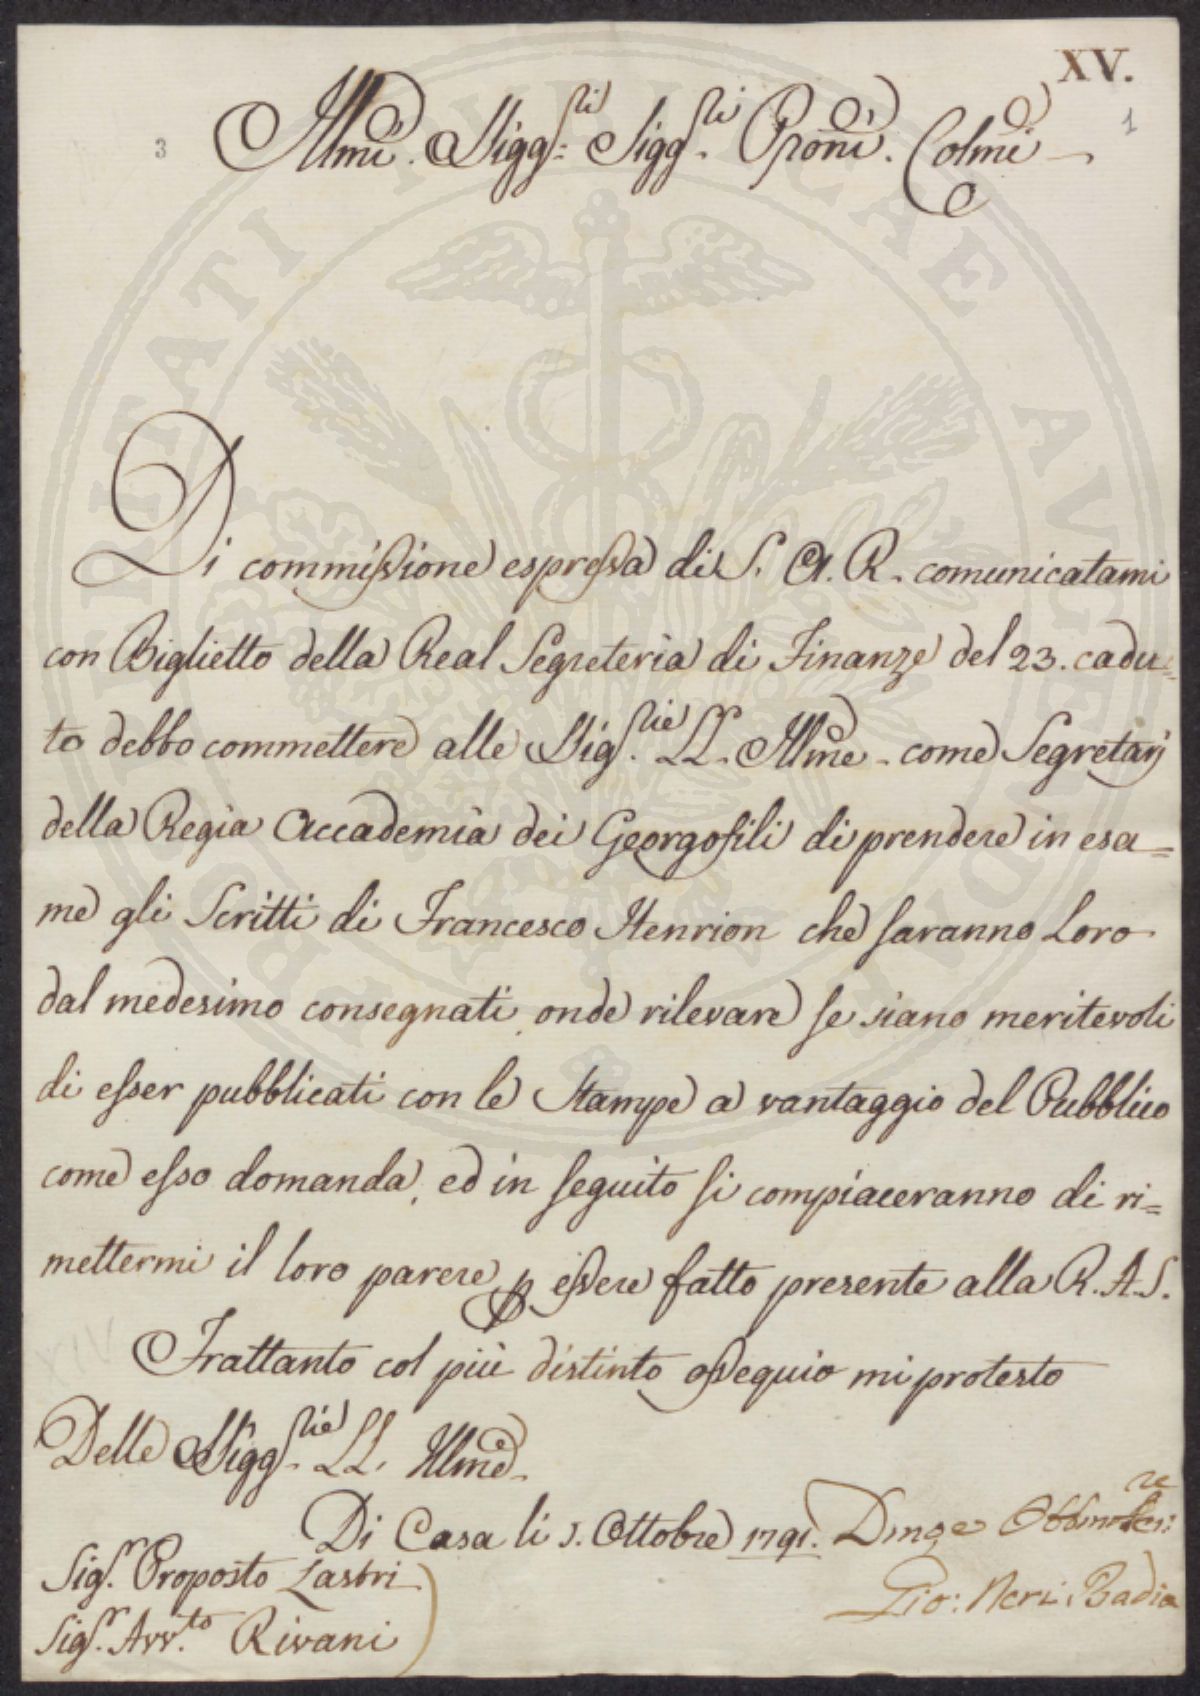 XV.
3
1
Illmi. Sigg:ri Sigg.ri Proni. Colmi
Di commissione espressa di S. A. R. comunicatami
con Biglietto della Real Segreteria di Finanze del 23. cadu=
to debbo commettere alle Sig.rie LL. Illme. come Segretarj
della Regia Accademia dei Georgofili di prendere in esa=
me gli Scritti di Francesco Henrion che saranno Loro
dal medesimo consegnati, onde rilevare se siano meritevoli
di esser pubblicati con le Stampe a vantaggio del Pubblico
come esso domanda, ed in seguito si compiaceranno di ri=
mettermi il loro parere p essere fatto presente alla R. A. S.
Frattanto col più distinto ossequio mi protesto
Delle Sigg.rie LL. Illme.
Di Casa li 5. Ottobre 1791.
Sig.r Proposto Lastri
Sig.r Avv.to Rivani
Gio: Neri Badia